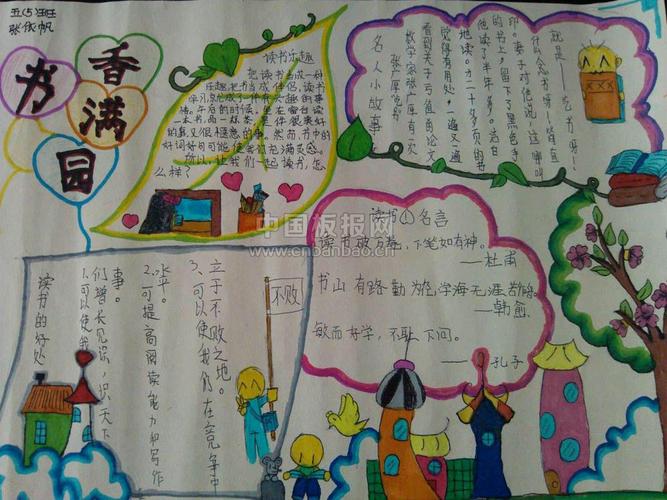 五(5)班
张依帆
书
香
满
园
读书乐趣
把读书当成一种
乐趣,把书当成伴侣,读书
学习自然成了一件有大趣的事
情。午后的时候,坐在窗台边
一本书,品一杯茶,是件很美好
的,真又很惬意的事。然而,书中的
好词好句可能使我们充满灵感。
所以,让我们一起读书,怎
么样?
名人小故事
张广厚吃书
数学家张广厚有一次
看到关于亏值的论文
觉得有用处,一遍又一遍
地读。才二十多页的书
他读了半年多。洁白
的书上,留下了黑色手
印。妻子对他说:这哪叫
什么念书呀!简直
就是——吃书呀!
中国板报网
www.cnbanbao.cn
读书的好处
1.可以使我
们增长见识,识天下
事。
2.可提高阅读能力和写作
水平。
3.可以使我们在竞争中
立于不败之地。
不败
读书名言
读书破万卷,下笔如有神。
——杜甫
书山有路勤为径,学海无涯苦作舟。
——韩愈
敏而好学,不耻下问。
——孔子